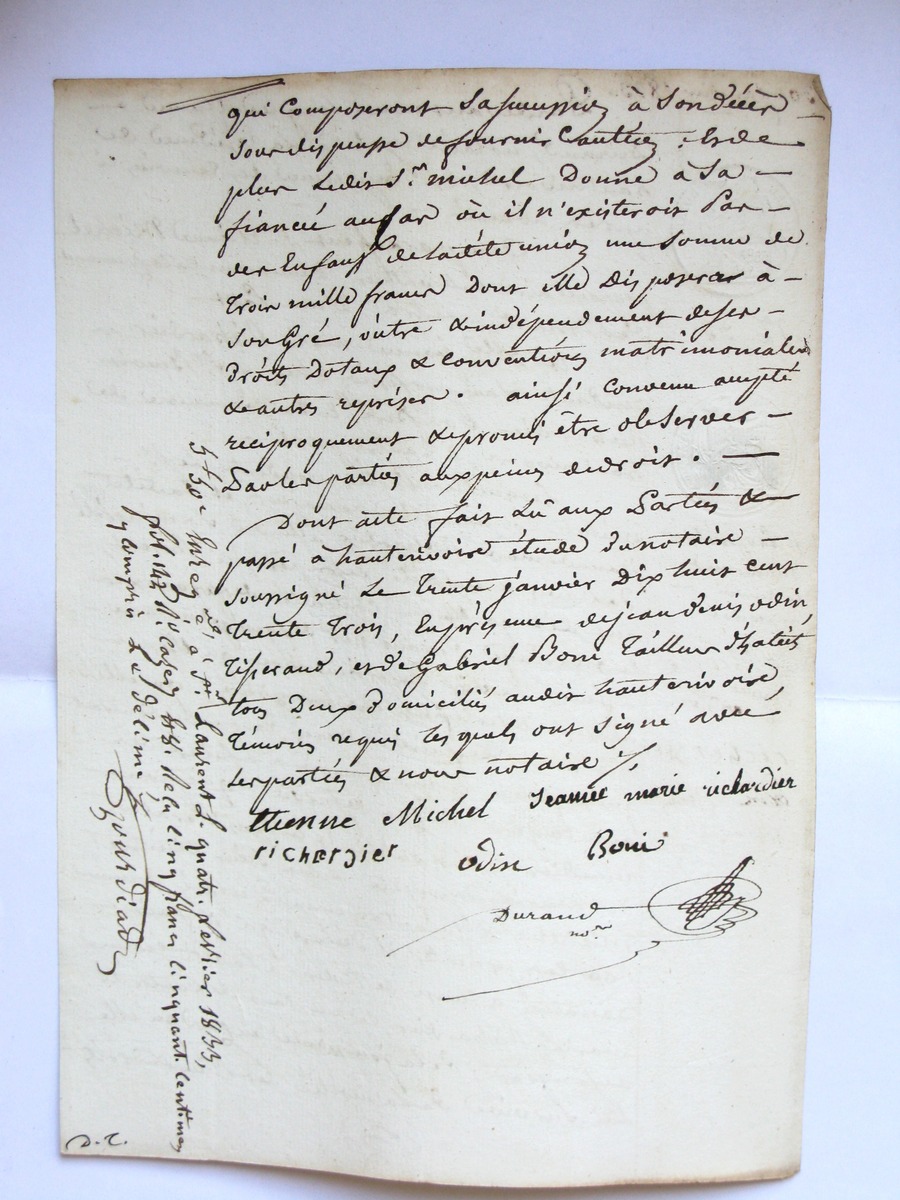 qui Composeront Sa succession à Son décès
sous dispense de fournir Caution ; Et de
plus Ledit Sr. michel Donne à Sa —
fiancée au Cas où il n'existeroit Pas —
des Enfans de Ladite union une Somme de
Trois mille francs Dont elle Disposera à —
Son Gré, outre & indépendement de ses —
droits Dotaux & conventions matrimoniales
& autres reprises . ainsi Convenu accepté
reciproquement & promis être observer —
Par les parties aux peines de droit . —
Dont acte fait Lû aux Parties &
passé à hauterivoire étude du notaire —
soussigné Le Trente janvier Dix huit cent
Trente Trois, En présence de jean denis odin,
Tisserand, et de Gabriel Boni Tailleur d'habits
tous Deux domiciliés audit hauterivoire
Témoins requis les quels ont signé avec
Les parties & nous notaire /.
Etienne Michel Jeanne marie richardier
richardier odin Boni
Durand
nore
5f 50c Enregtré à St Laurent L. quatr. fevrier 1833,
fol. 142 Ro Case 4 & 8. Reçu Cinq francs Cinquant. Centimes
y compris Le décime
D. T.